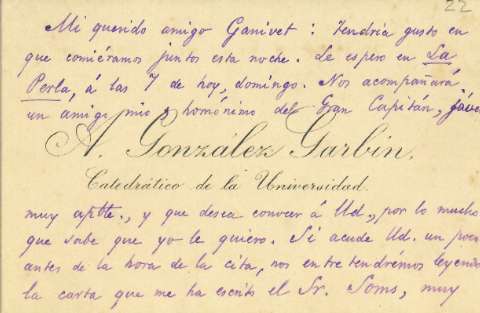 22
Mi querido amigo Ganivet: Tendría gusto en
que comiéramos juntos esta noche. Le espero en La
Perla, á las 7 de hoy, domingo. Nos acompañará
un amigo mio y homónimo del Gran Capitán, jóven
A. González Garbín.
Catedrático de la Universidad.
muy aptte., y que desea conocer á Ud., por lo mucho
que sabe que yo le quiero. Si acude Ud. un poco
antes de la hora de la cita, nos entretendrémos leyendo
la carta que me ha escrito el Sr. Soms, muy